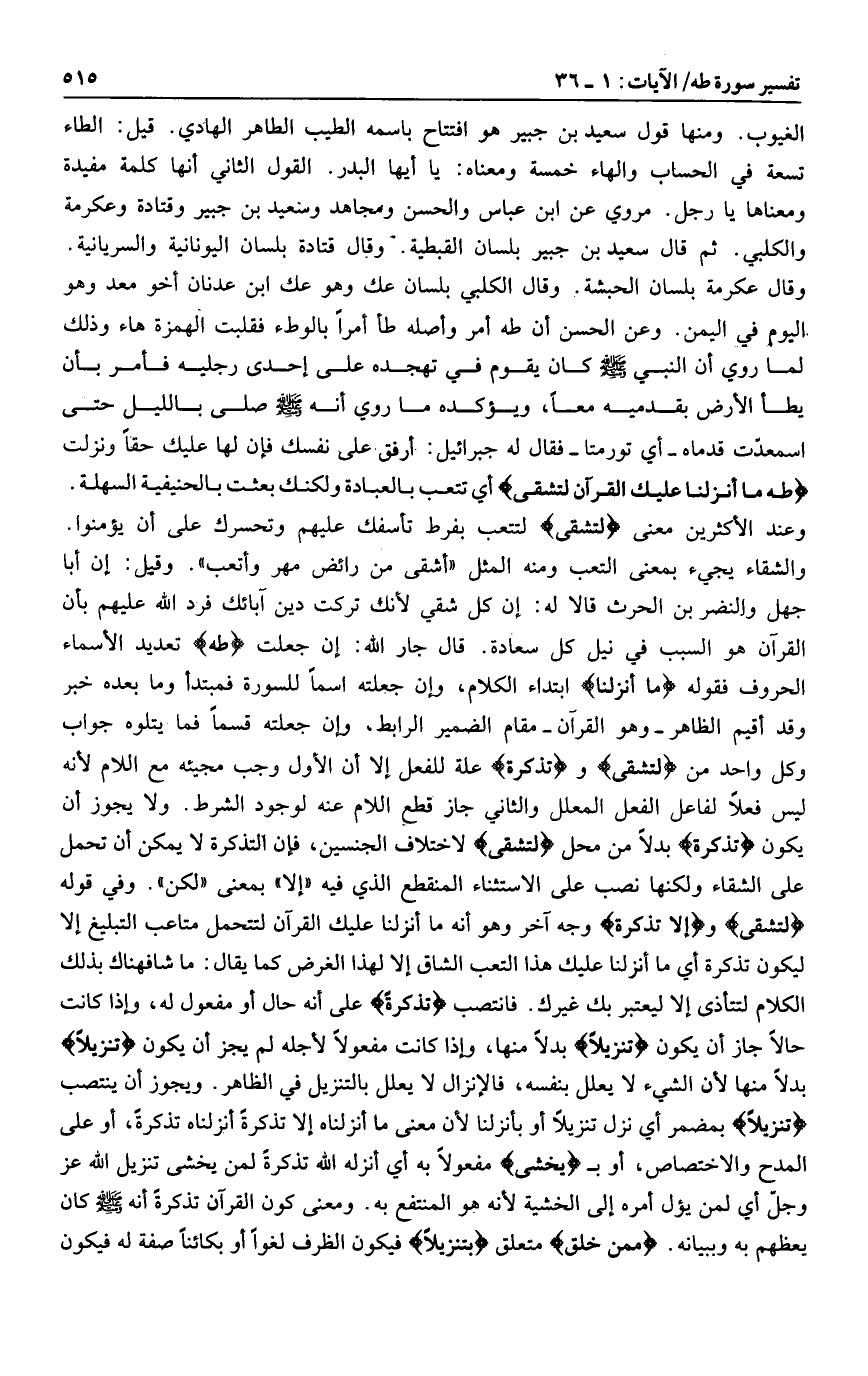 تفسير سورة طه/ الآيات: ١ ـ ٣٦
٥١٥
الغيوب. ومنها قول سعيد بن جبير هو افتتاح باسمه الطيب الطاهر الهادي. قيل: الطاء
تسعة في الحساب والهاء خمسة ومعناه: يا أيها البدر. القول الثاني أنها كلمة مفيدة
ومعناها يا رجل. مروي عن ابن عباس والحسن ومجاهد وسعيد بن جبير وقتادة وعكرمة
والكلبي. ثم قال سعيد بن جبير بلسان القبطية. وقال قتادة بلسان اليونانية والسريانية.
وقال عكرمة بلسان الحبشة. وقال الكلبي بلسان عك وهو عك ابن عدنان أخو معد وهو
اليوم في اليمن. وعن الحسن أن طه أمر وأصله طأ أمراً بالوطء فقلبت الهمزة هاء وذلك
لما روي أن النبي ﷺ كان يقوم في تهجده على إحدى رجليه فأمر بأن
يطأ الأرض بقدميه معاً، ويؤكده ما روي أنه ﷺ صلى بالليل حتى
اسمعدّت قدماه ـ أي تورمتا ـ فقال له جبرائيل: أرفق على نفسك فإن لها عليك حقاً ونزلت
﴿طه ما أنزلنا عليك القرآن لتشقى﴾ أي تتعب بالعبادة ولكنك بعثت بالحنيفية السهلة.
وعند الأكثرين معنى ﴿لتشقى﴾ لتتعب بفرط تأسفك عليهم وتحسرك على أن يؤمنوا.
والشقاء يجيء بمعنى التعب ومنه المثل «أشقى من رائض مهر وأتعب». وقيل: إن أبا
جهل والنضر بن الحرث قالا له: إن كل شقي لأنك تركت دين آبائك فرد الله عليهم بأن
القرآن هو السبب في نيل كل سعادة. قال جار الله: إن جعلت ﴿طه﴾ تعديد الأسماء
الحروف فقوله ﴿ما أنزلنا﴾ ابتداء الكلام، وإن جعلته اسماً للسورة فمبتدأ وما بعده خبر
وقد أقيم الظاهر ـ وهو القرآن ـ مقام الضمير الرابط، وإن جعلته قسماً فما يتلوه جواب
وكل واحد من ﴿لتشقى﴾ و ﴿تذكرة﴾ علة للفعل إلا أن الأول وجب مجيئه مع اللام لأنه
ليس فعلاً لفاعل الفعل المعلل والثاني جاز قطع اللام عنه لوجود الشرط. ولا يجوز أن
يكون ﴿تذكرة﴾ بدلاً من محل ﴿لتشقى﴾ لاختلاف الجنسين، فإن التذكرة لا يمكن أن تحمل
على الشقاء ولكنها نصب على الاستثناء المنقطع الذي فيه «إلا» بمعنى «لكن». وفي قوله
﴿لتشقى﴾ و﴿إلا تذكرة﴾ وجه آخر وهو أنه ما أنزلنا عليك القرآن لتتحمل متاعب التبليغ إلا
ليكون تذكرة أي ما أنزلنا عليك هذا التعب الشاق إلا لهذا الغرض كما يقال: ما شافهناك بذلك
الكلام لتتأذى إلا ليعتبر بك غيرك. فانتصب ﴿تذكرةً﴾ على أنه حال أو مفعول له، وإذا كانت
حالاً جاز أن يكون ﴿تنزيلاً﴾ بدلاً منها، وإذا كانت مفعولاً لأجله لم يجز أن يكون ﴿تنزيلاً﴾
بدلاً منها لأن الشيء لا يعلل بنفسه، فالإنزال لا يعلل بالتنزيل في الظاهر. ويجوز أن ينتصب
﴿تنزيلاً﴾ بمضمر أي نزل تنزيلاً أو بأنزلنا لأن معنى ما أنزلناه إلا تذكرةً أنزلناه تذكرةً، أو على
المدح والاختصاص، أو بـ ﴿يخشى﴾ مفعولاً به أي أنزله الله تذكرةً لمن يخشى تنزيل الله عز
وجلّ أي لمن يؤل أمره إلى الخشية لأنه هو المنتفع به. ومعنى كون القرآن تذكرةً أنه ﷺ كان
يعظهم به وببيانه. ﴿ممن خلق﴾ متعلق ﴿بتنزيلاً﴾ فيكون الظرف لغواً أو بكائناً صفة له فيكون